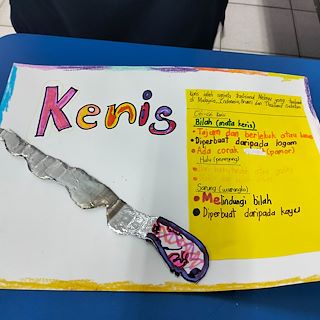 Kenis
Keris ialah senjata tradisional Melayu yang terdapat
di Malaysia, Indonesia, Brunei dan Thailand Selatan.
Ciri-ciri Keris
Bilah (mata keris)
Tajam dan berlekuk atau lurus
Diperbuat daripada logam
Ada corak (pamor)
Hulu (pemegang)
Sarung (warangka)
Melindungi bilah
Diperbuat daripada kayu